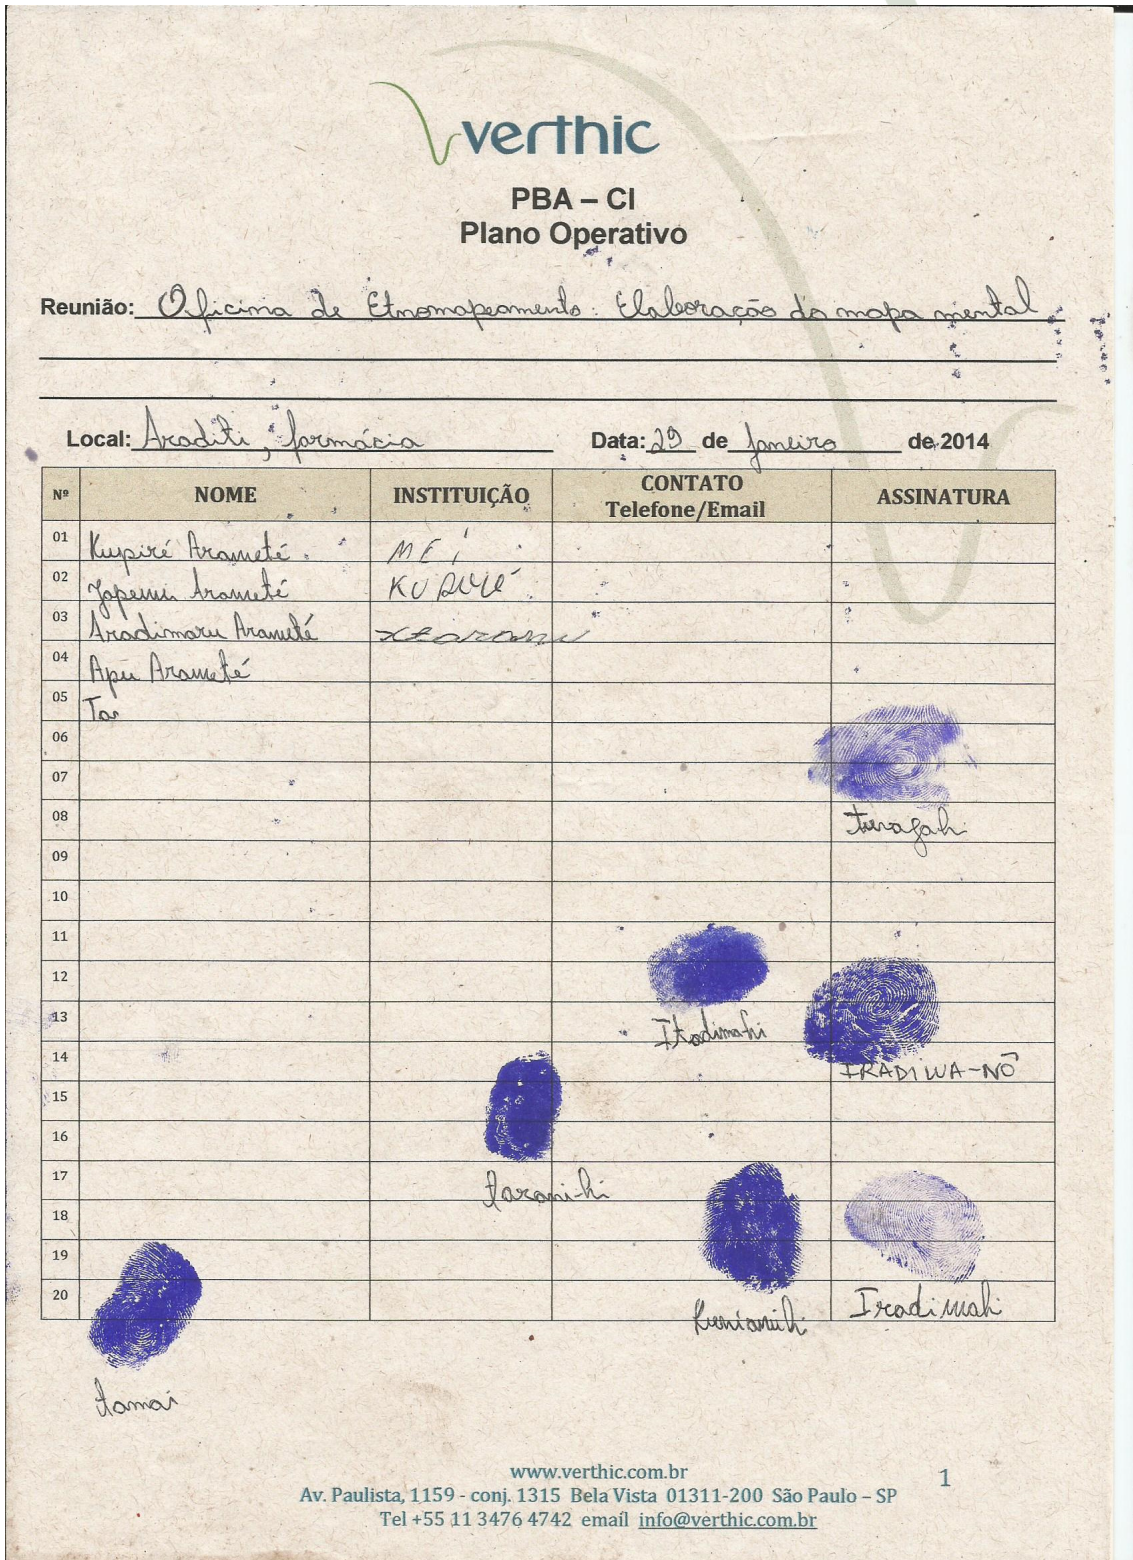 verthic
PBA – CI
Plano Operativo
Reunião: Oficina de Etnomapeamento: Elaboração do mapa mental
Local: Araditi, farmácia Data: 29 de Janeiro de 2014
Nº NOME INSTITUIÇÃO CONTATO Telefone/Email ASSINATURA
01 Kupiré Arameté MEÍ
02 Japemi Arameté
03 Aradimaru Arameté
04 Apii Arameté
05 Ta
06
07
08
09
10
11
12
13 Itadimahi
14 IRADIWA-NÔ
15
16
17 taranihi
18
19
20 Iradimahi
tamai
www.verthic.com.br 1
Av. Paulista, 1159 - conj. 1315 Bela Vista 01311-200 São Paulo – SP
Tel +55 11 3476 4742 email info@verthic.com.br